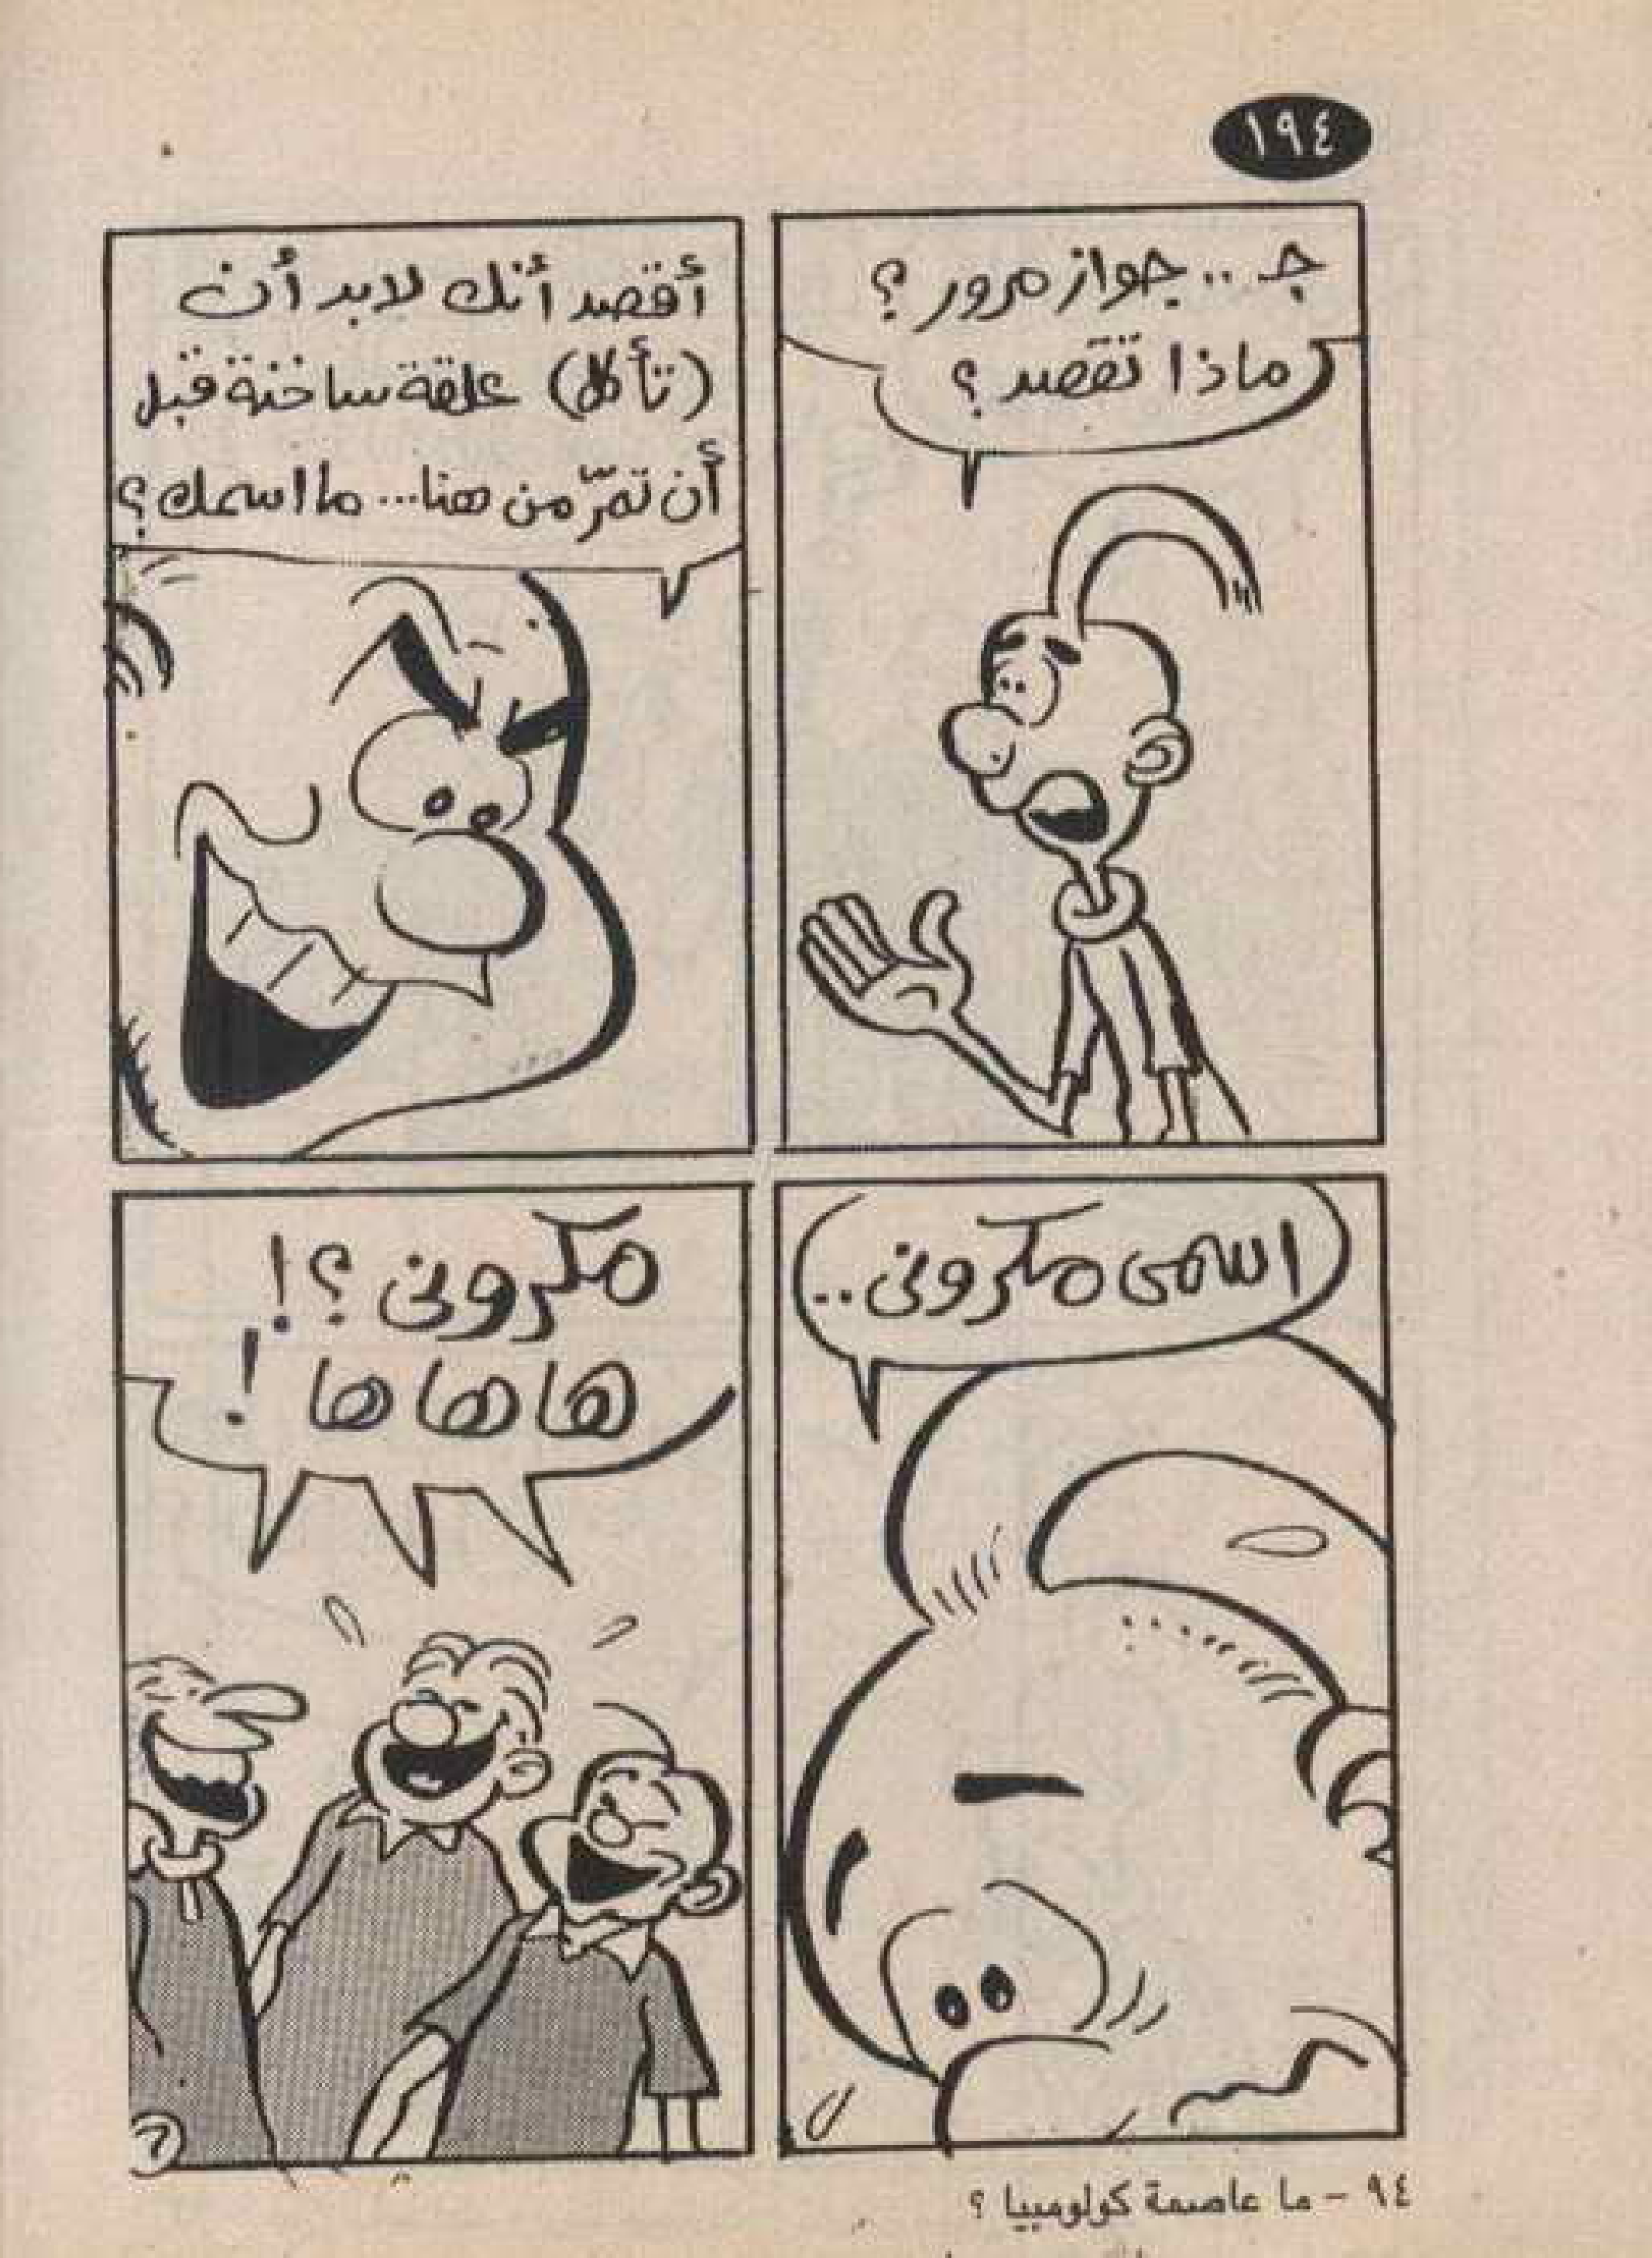 ١٩٤
جـ .. جواز مرور ؟
ماذا تقصد ؟
أقصد أنك لابد أن
(تأكل) علقة ساخنة قبل
أن تمرّ من هنا... ما اسمك ؟
اسمى مكرونى ..
مكرونى ؟!
ها ها ها !
٩٤ - ما عاصمة كولومبيا ؟